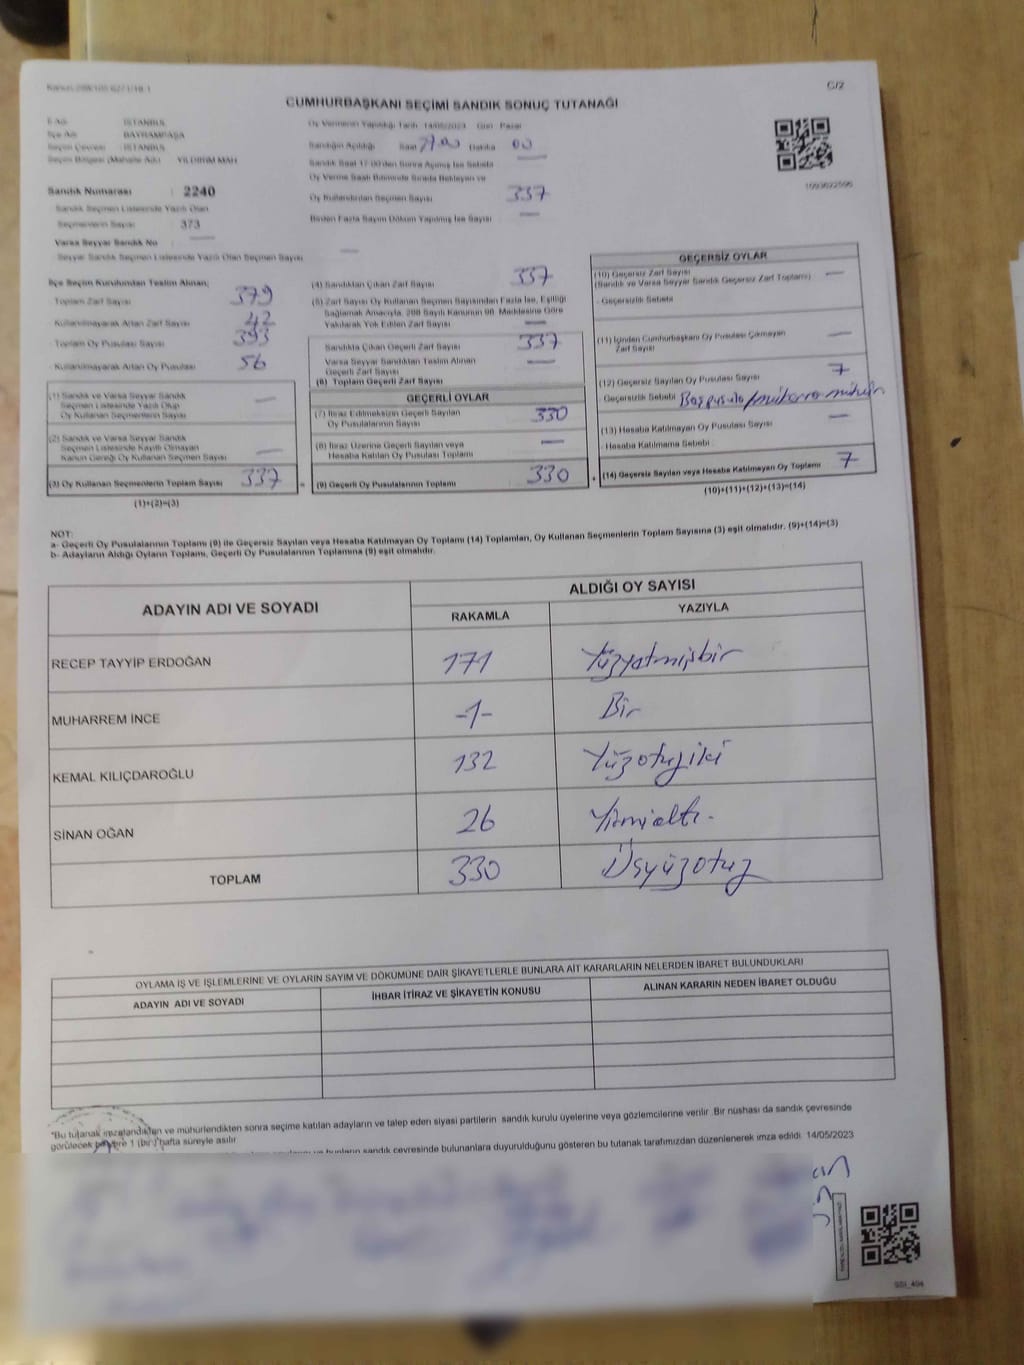 C/2
CUMHURBAŞKANI SEÇİMİ SANDIK SONUÇ TUTANAĞI
İl Adı : İSTANBUL
İlçe Adı : BAYRAMPAŞA
Seçim Çevresi : İSTANBUL
Seçim Bölgesi (Mahalle Adı) : YILDIRIM MAH.
Sandık Numarası : 2240
Sandık Seçmen Listesinde Yazılı Olan
Seçmenlerin Sayısı : 373
Varsa Seyyar Sandık No : —
Seyyar Sandık Seçmen Listesinde Yazılı Olan Seçmen Sayısı —
Oy Vermenin Yapıldığı Tarih 14/05/2023 Gün Pazar
Sandığın Açıldığı Saat Dakika 00
Sandık Saat 17:00'den Sonra Açılmış İse Sebebi —
Oy Verme Saati Bitiminde Sırada Bekleyen ve
Oy Kullandırılan Seçmen Sayısı 337
Birden Fazla Sayım Döküm Yapılmış İse Sayısı —
1093622596
İlçe Seçim Kurulundan Teslim Alınan;
Toplam Zarf Sayısı 379
Kullanılmayarak Artan Zarf Sayısı 42
Toplam Oy Pusulası Sayısı 393
Kullanılmayarak Artan Oy Pusulası 56
(1) Sandık ve Varsa Seyyar Sandık
Seçmen Listesinde Yazılı Olup
Oy Kullanan Seçmenlerin Sayısı —
(2) Sandık ve Varsa Seyyar Sandık
Seçmen Listesinde Kayıtlı Olmayan
Kanun Gereği Oy Kullanan Seçmen Sayısı —
(3) Oy Kullanan Seçmenlerin Toplam Sayısı 337
(1)+(2)=(3)
(4) Sandıktan Çıkan Zarf Sayısı 337
(5) Zarf Sayısı Oy Kullanan Seçmen Sayısından Fazla İse, Eşitliği
Sağlamak Amacıyla, 298 Sayılı Kanunun 98. Maddesine Göre
Yakılarak Yok Edilen Zarf Sayısı —
Sandıkta Çıkan Geçerli Zarf Sayısı 337
Varsa Seyyar Sandıktan Teslim Alınan
Geçerli Zarf Sayısı —
(6) Toplam Geçerli Zarf Sayısı
GEÇERLİ OYLAR
(7) İtiraz Edilmeksizin Geçerli Sayılan
Oy Pusulasının Sayısı 330
(8) İtiraz Üzerine Geçerli Sayılan veya
Hesaba Katılan Oy Pusulası Toplamı —
(9) Geçerli Oy Pusulalarının Toplamı 330
GEÇERSİZ OYLAR
(10) Geçersiz Zarf Sayısı
(Sandık ve Varsa Seyyar Sandık Geçersiz Zarf Toplamı) —
Geçersizlik Sebebi
(11) İçinden Cumhurbaşkanı Oy Pusulası Çıkmayan
Zarf Sayısı —
(12) Geçersiz Sayılan Oy Pusulası Sayısı 7
Geçersizlik Sebebi
(13) Hesaba Katılmayan Oy Pusulası Sayısı —
Hesaba Katılmama Sebebi :
(14) Geçersiz Sayılan veya Hesaba Katılmayan Oy Toplamı 7
(10)+(11)+(12)+(13)=(14)
NOT:
a- Geçerli Oy Pusulalarının Toplamı (9) ile Geçersiz Sayılan veya Hesaba Katılmayan Oy Toplamı (14) Toplamları, Oy Kullanan Seçmenlerin Toplam Sayısına (3) eşit olmalıdır. (9)+(14)=(3)
b- Adayların Aldığı Oyların Toplamı, Geçerli Oy Pusulalarının Toplamına (9) eşit olmalıdır.
ADAYIN ADI VE SOYADI ALDIĞI OY SAYISI
RAKAMLA YAZIYLA
RECEP TAYYİP ERDOĞAN 171 Yüzyetmişbir
MUHARREM İNCE -1- Bir
KEMAL KILIÇDAROĞLU 132 Yüzotuziki
SİNAN OĞAN 26 Yirmialtı.
TOPLAM 330 Üçyüzotuz
OYLAMA İŞ VE İŞLEMLERİNE VE OYLARIN SAYIM VE DÖKÜMÜNE DAİR ŞİKAYETLERLE BUNLARA AİT KARARLARIN NELERDEN İBARET BULUNDUKLARI
ADAYIN ADI VE SOYADI İHBAR İTİRAZ VE ŞİKAYETİN KONUSU ALINAN KARARIN NEDEN İBARET OLDUĞU
"Bu tutanak imzalandıktan ve mühürlendikten sonra seçime katılan adayların ve talep eden siyasi partilerin sandık kurulu üyelerine veya gözlemcilerine verilir. Bir nüshası da sandık çevresinde
görülecek bir yere 1 (bir) hafta süreyle asılır.
bunların sandık çevresinde bulunanlara duyurulduğunu gösteren bu tutanak tarafımızdan düzenlenerek imza edildi. 14/05/2023